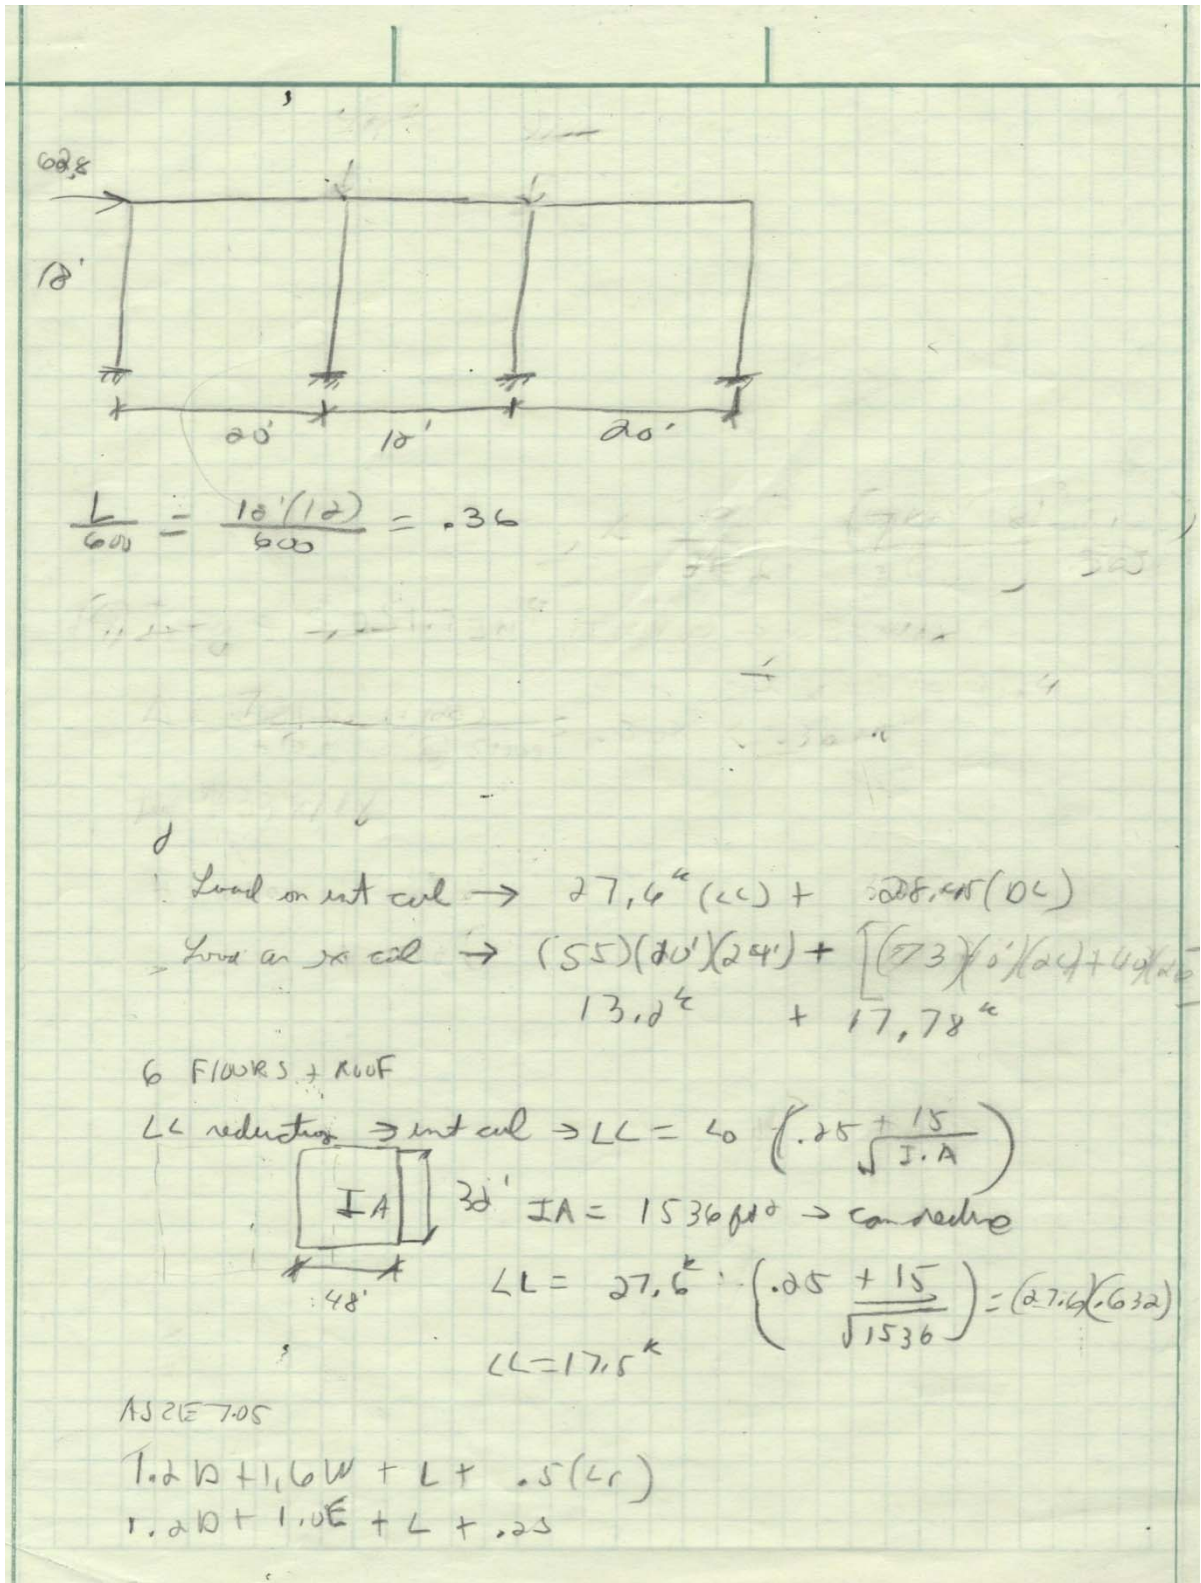 62.8
18'
20' 12' 20'
L/600 = 18'(12)/600 = .36
Load on int col → 27.6ᵏ (LL) + 28.45 (DL)
Load on ex col → (55)(10')(24') + [(73)(10')(24)+40(20
13.2ᵏ + 17.78ᵏ
6 FLOORS + ROOF
LL reduction → int col → LL = Lo (.25 + 15/√I.A)
IA 32' IA = 1536 ft2 → can reduce
48'
LL = 27.6ᵏ (.25 + 15/√1536) = (27.6)(.632)
LL=17.5ᵏ
ASCE 7.05
1.2D+1.6W + L + .5(Lr)
1.2D + 1.0E + L + .2S